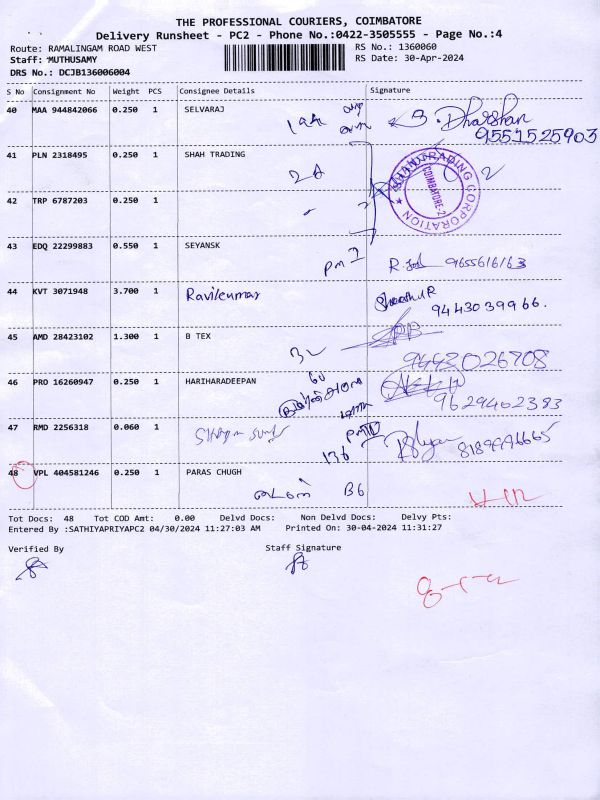 THE PROFESSIONAL COURIERS, COIMBATORE
Delivery Runsheet - PC2 - Phone No.:0422-3505555 - Page No.:4
Route: RAMALINGAM ROAD WEST
Staff: MUTHUSAMY
DRS No.: DCJB136006004
RS No.: 1360060
RS Date: 30-Apr-2024
S No Consignment No Weight PCS Consignee Details Signature
40 MAA 944842066 0.250 1 SELVARAJ Dharshan
9551525903
41 PLN 2318495 0.250 1 SHAH TRADING
SHAH TRADING CORPORATION
COIMBATORE-2
42 TRP 6787203 0.250 1
43 EDQ 22299883 0.550 1 SEYANSK
9655616163
44 KVT 3071948 3.700 1 Ravikumar
9443039966.
45 AMD 28423102 1.300 1 B TEX
9443026708
46 PRO 16260947 0.250 1 HARIHARADEEPAN
9629402383
47 RMD 2256318 0.060 1
136
8189996665
48 VPL 404581246 0.250 1 PARAS CHUGH
B6
Tot Docs: 48 Tot COD Amt: 0.00 Delvd Docs: Non Delvd Docs: Delvy Pts:
Entered By :SATHIYAPRIYAPC2 04/30/2024 11:27:03 AM Printed On: 30-04-2024 11:31:27
Verified By Staff Signature